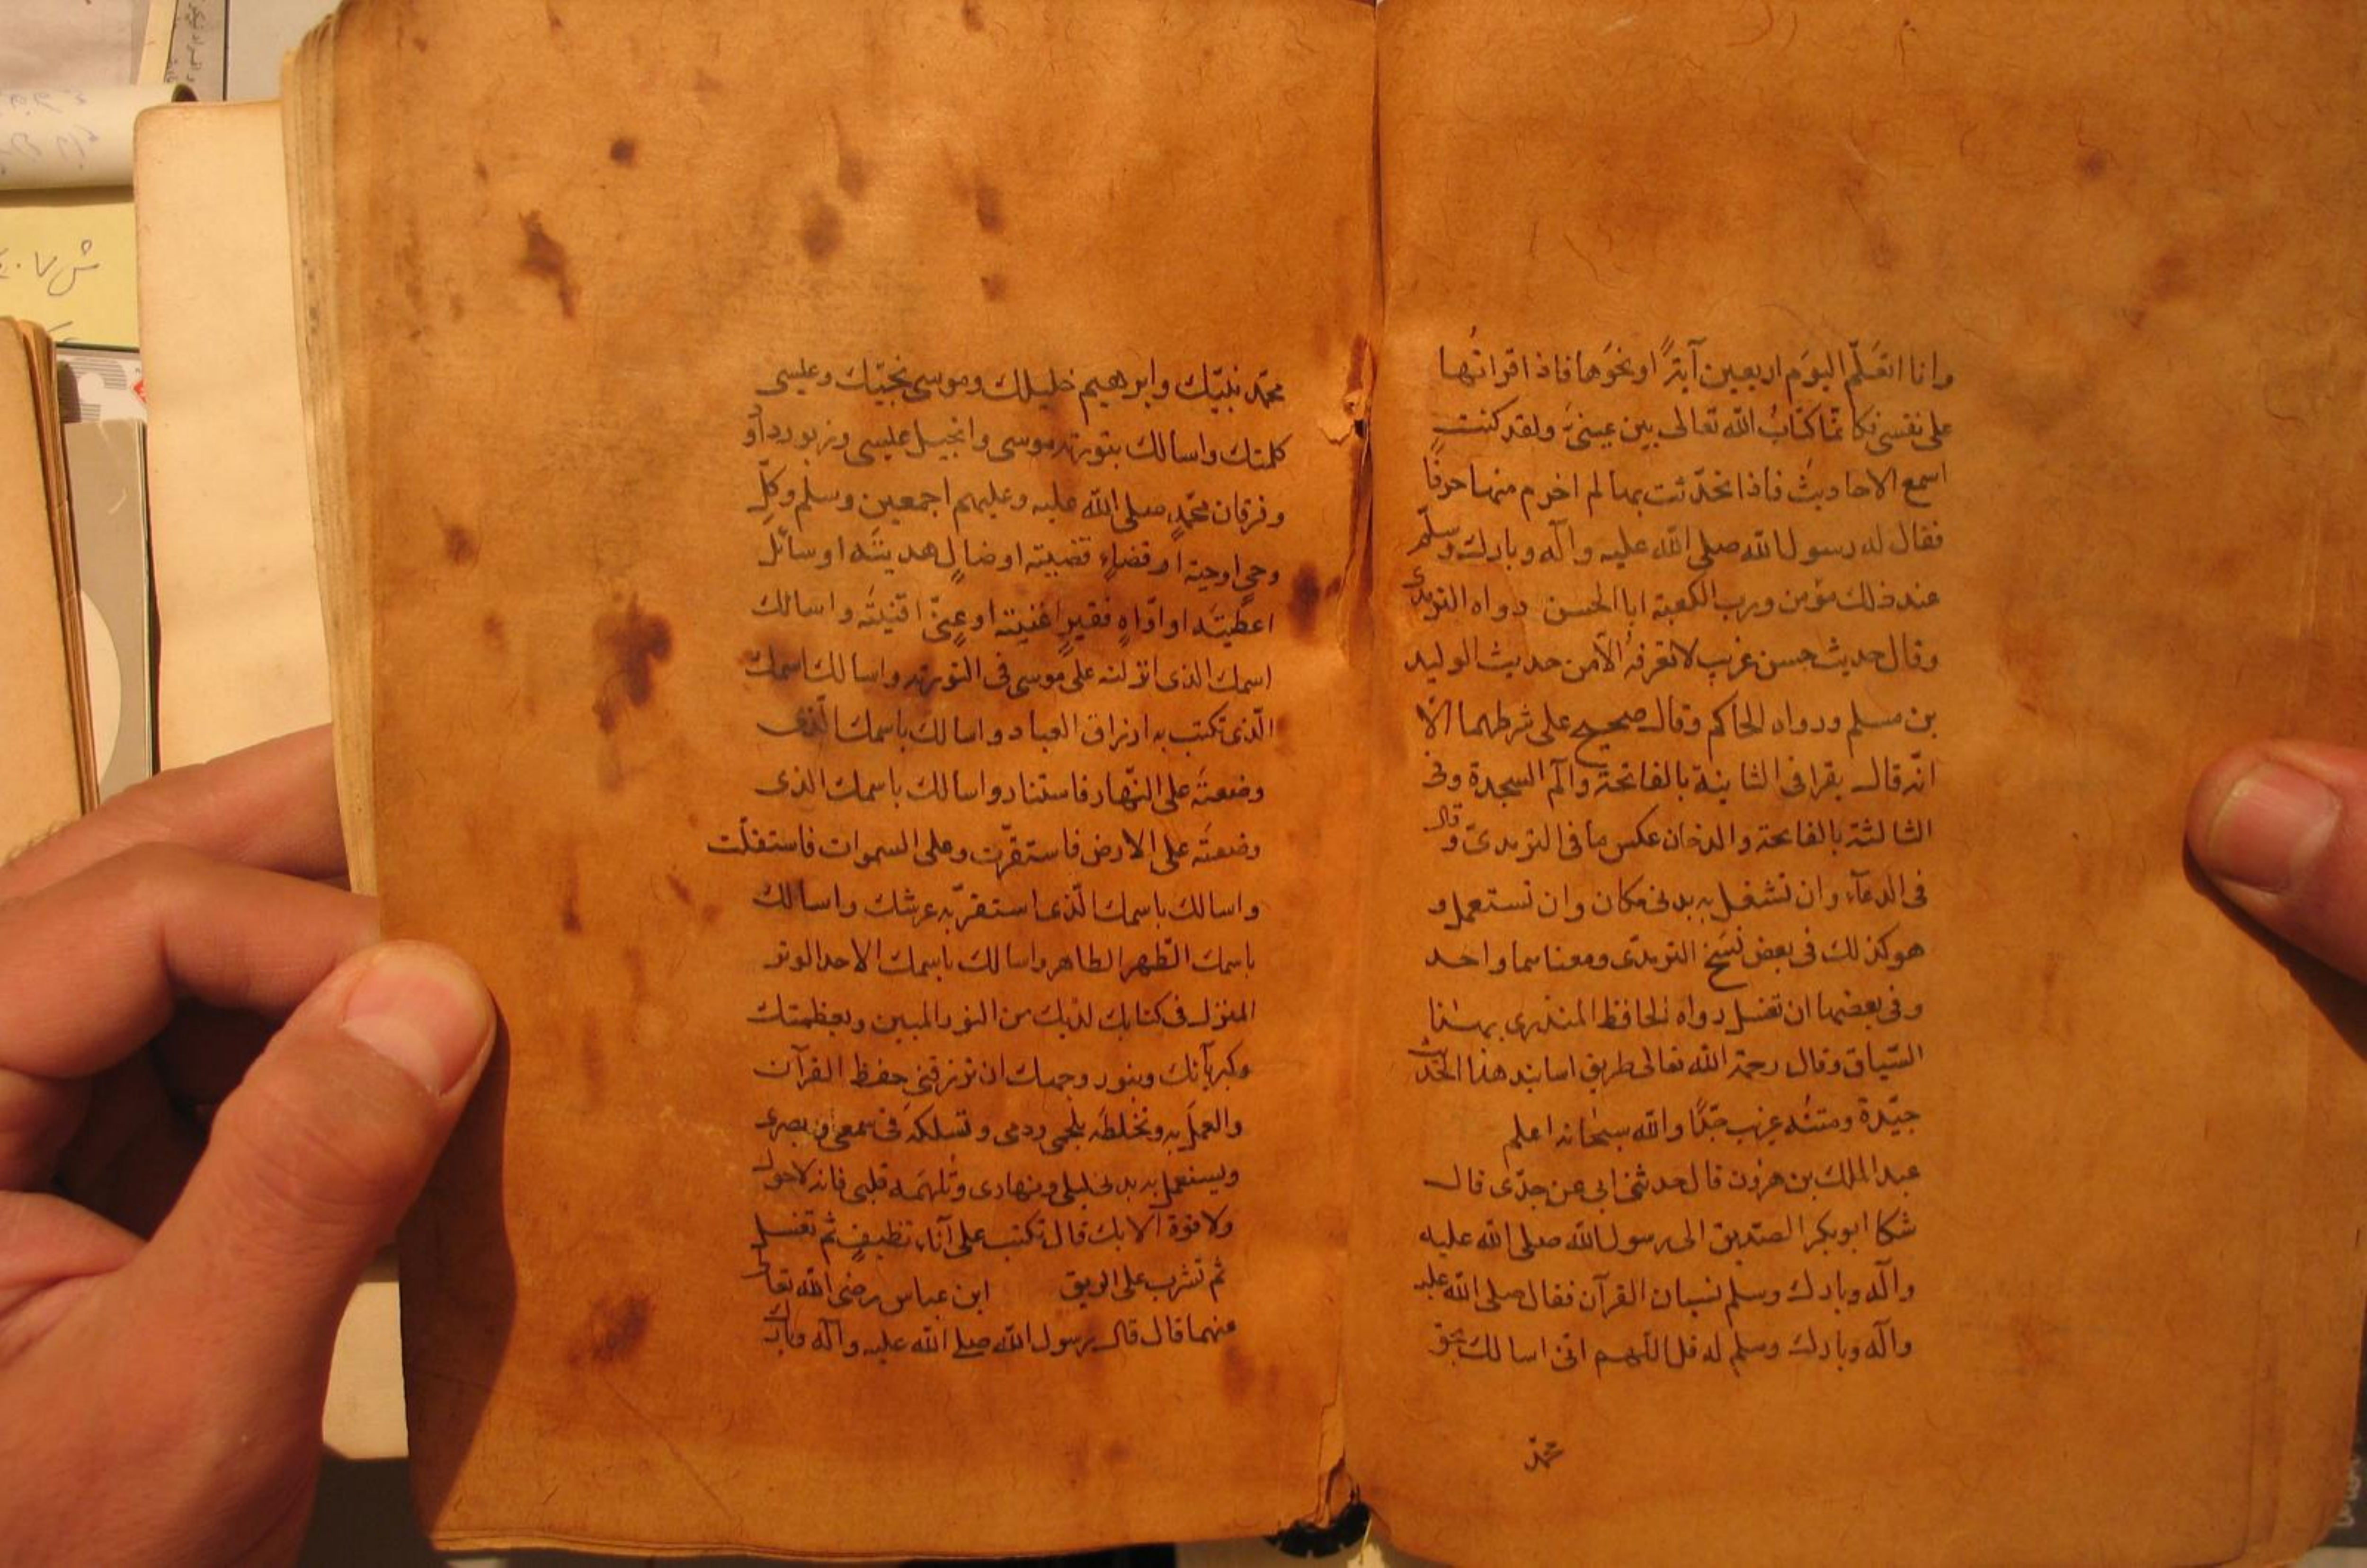 وانا اتعَلّم اليوَم اربعين آيةً او نحوَها فاذا قراتُها
على نفسى فكانّما كتابُ اللّه تعالى بين عينىَّ ولقد كنت
اسمع الاحاديثَ فاذا تحدّثت بها لم اخرم منها حرفًا
فقال له رسول الله صلى الله عليه وآله وبارك وسلّم
عند ذلك مؤمن وربِ الكعبة ابا الحسن رواه الترمذى
وقال حديث حسن غريب لا نعرفهُ الّا من حديث الوليد
بن مسلم ورواه الحاكم وقال صحيح على شرطهما الّا
انّه قال يقرا فى الثانية بالفاتحة والم السجدة وفى
الثالثة بالفاتحة والدخان عكس ما فى الترمدىّ وقال
فى الدعآء وان تشغل به بدنى مكان وان تستعمل و
هو كذلك فى بعض نُسَخ الترمدّى ومعناهما واحد
وفى بعضها ان تغسل رواه الحافظ المنذرى بهذا
السّياق وقال رحمة الله تعالى طريق اسانيد هذا الحديث
جيّدة ومتنُه غريب جدًّا واللّه سبحانه اعلم
عبد الملك بن هرون قال حدثنى ابى عن جدّى قال
شكا ابو بكر الصّديق الى رسول اللّه صلى الله عليه
وآله وبارك وسلم نسيان القرآن فقال صلى اللّه عليه
وآله وبارك وسلم له قل اللّهم انّى اسالك بحق
محمّد
محمّد نبيّك وابرهيم خليلك وموسى نجيّك وعيسى
كلمتك واسالك بتورية موسى وانجيل عيسى وزبور داود
وفرقان محمّدٍ صلى الله عليه وعليهم اجمعين وسلم وكلِّ
وحىٍ اوحيته او قضاءٍ قضيته او ضالٍ هديتَه او سائل
اعطيتَه او فقيرٍ اغنيته او غنىٍّ اقنيتَه واسالك
اسمك الذى انزلته على موسى فى التورية واسالك اسمك
الّذى تكتب به ارزاق العباد واسالك باسمك الّذى
وضعتَه على النّهار فاستنار واسالك باسمك الذى
وضعتَه على الارض فاستقرّت وعلى السموات فاستقلّت
واسالك باسمك الّذى استقرّ به عرشك واسالك
باسمك الطّهر الطاهر واسالك باسمك الاحد الوتر
المنزل فى كتابك لديك من النور المبين وبعظمتك
وكبريآئك وبنور وجهك ان ترزقنى حفظ القرآن
والعملَ به وتخلطَه بلحمى ودمى وتسلكهَ فى سمعى وبصرى
ويستعمل به بدنى ليلى ونهارى وتُلهمَه قلبى فانه لا حول
ولا قوة الا بك قال تكتب على آناء نظيفٍ ثم تغسل
ثم تشرب على الريق ابن عباس رضى الله تعالى
عنهما قال قال رسول الله صلے الله عليه وآله وبارك